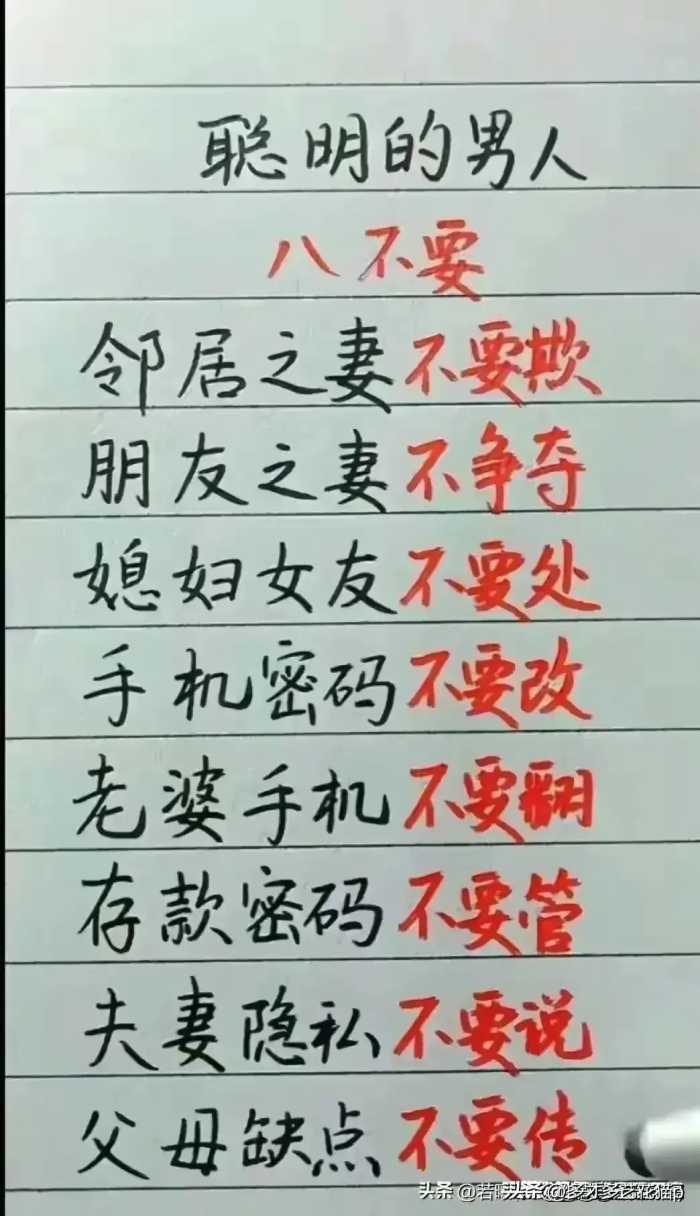 聪明的男人
八不要
邻居之妻不要欺
朋友之妻不争夺
媳妇女友不要处
手机密码不要改
老婆手机不要翻
存款密码不要管
夫妻隐私不要说
父母缺点不要传
头条